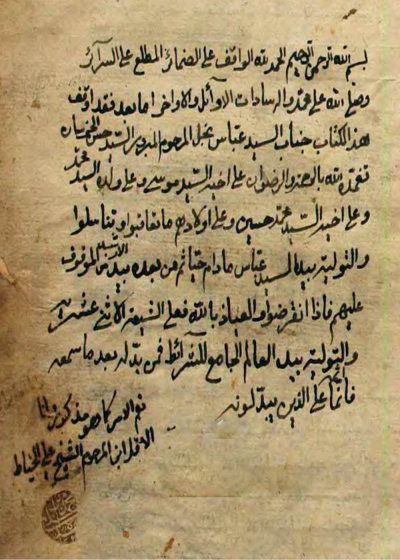 بسم الله الرحمن الرحيم الحمد لله الواقف على الضمائر المطلع على السرائر
وصلى الله على محمد واله سادات الاوائل والاواخر اما بعد فقد اوقف
هذا الكتاب جناب السيد عباس نجل المرحوم المبرور السيد حسن
تغمده الله بالرحمة والرضوان على اخيه السيد موسى وعلى ولده السيد محمد
وعلى اخيه السيد محمد حسين وعلى اولادهم ما تعاقبوا وتناسلوا
والتولية بيد السيد عباس مادام حيا ثم من بعده بيد الموقوف
عليهم فاذا انقرضوا والعياذ بالله فعلى الشيعة الاثني عشرية
والتولية بيد العالم الجامع للشرائط فمن بدله بعد ما سمعه
فانما اثمه على الذين يبدلونه
نعم الامر كما هو مذكور وانا
الاقل ابن المرحوم الشيخ علي الخياط